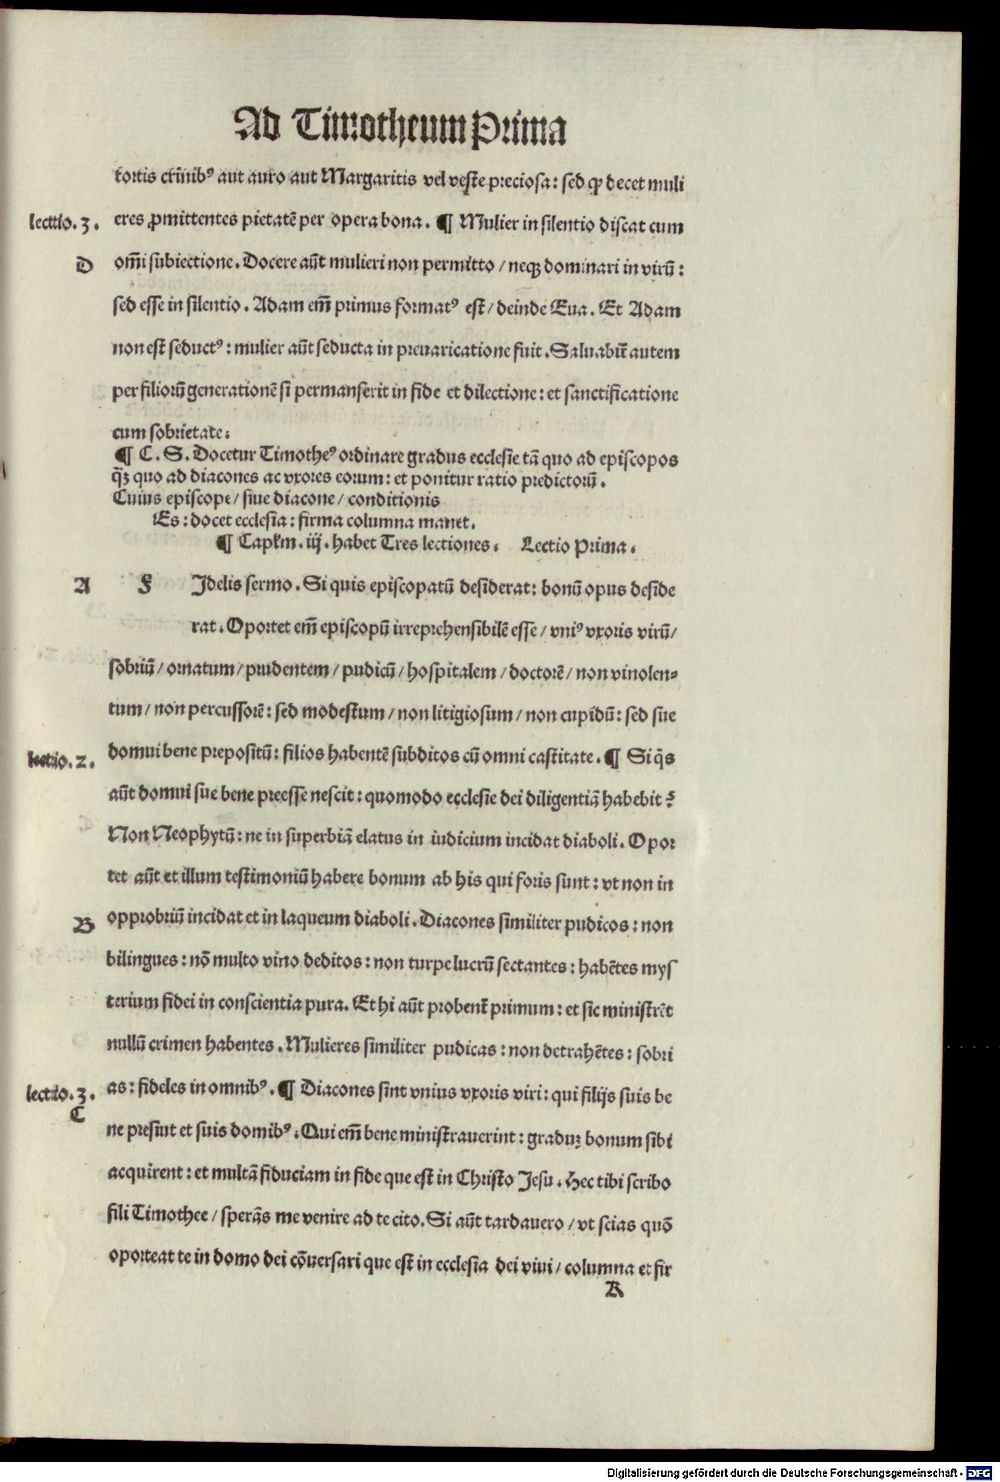 Ad Timotheum Prima
tortis crinibꝰ aut auro aut Margaritis vel veste preciosa: sed ꝙ decet muli
lectio. 3. eres ꝓmittentes pietatē per opera bona. ¶ Mulier in silentio discat cum
D om̄i subiectione. Docere aūt mulieri non permitto / neqꝫ dominari in virū:
sed esse in silentio. Adam em̄ primus formatꝰ est / deinde Eua. Et Adam
non est seductꝰ: mulier aūt seducta in preuaricatione fuit. Saluabit̄ autem
per filiorū generationē si permanserit in fide et dilectione: et sanctificatione
cum sobrietate:
¶ C. S. Docetur Timotheꝰ ordinare gradus ecclesie tā quo ad episcopos
q̄ꝫ quo ad diacones ac vxores eorum: et ponitur ratio predictorū.
Cuius episcope / siue diacone / conditionis
Es: docet ecclesia: firma columna manet.
¶ Capl̄m. iij. habet Tres lectiones. Lectio Prima.
A f Idelis sermo. Si quis episcopatū desiderat: bonū opus deside
rat. Oportet em̄ episcopū irreprehensibilē esse / vniꝰ vxoris virū /
sobriū / ornatum / prudentem / pudicū / hospitalem / doctorē / non vinolen-
tum / non percussorē: sed modestum / non litigiosum / non cupidū: sed sue
lectio. 2. domui bene prepositū: filios habentē subditos cū omni castitate. ¶ Si q̄s
aūt domui sue bene preesse nescit: quomodo ecclesie dei diligentiā habebit?
Non Neophytū: ne in superbiā elatus in iudicium incidat diaboli. Opor
tet aūt et illum testimoniū habere bonum ab his qui foris sunt: vt non in
B opprobriū incidat et in laqueum diaboli. Diacones similiter pudicos: non
bilingues: nō multo vino deditos: non turpe lucrū sectantes: habētes mys
terium fidei in conscientia pura. Et hi aūt probent̄ primum: et sic ministrēt
nullū crimen habentes. Mulieres similiter pudicas: non detrahētes: sobri
lectio. 3. as: fideles in omnibꝰ. ¶ Diacones sint vnius vxoris viri: qui filijs suis be
C
ne presint et suis domibꝰ. Qui em̄ bene ministrauerint: graduꝫ bonum sibi
acquirent: et multā fiduciam in fide que est in Christo Jesu. Hec tibi scribo
fili Timothee / sperās me venire ad te cito. Si aūt tardauero / vt scias quō
oporteat te in domo dei cōuersari que est in ecclesia dei viui / columna et fir
K
Digitalisierung gefördert durch die Deutsche Forschungsgemeinschaft - DFG